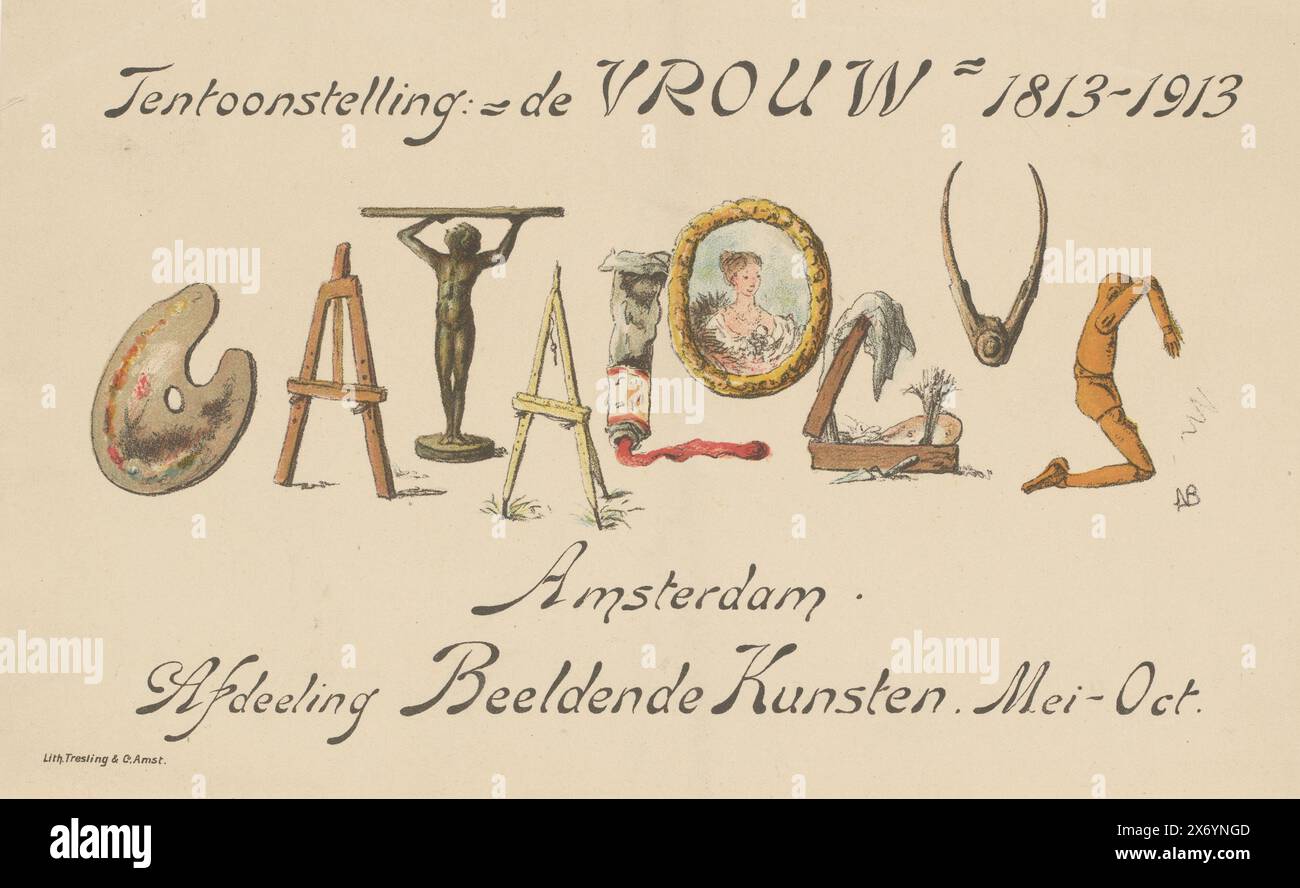 Tentoonstelling: = de VROUW = 1813-1913
CATALOGUS
AB
Amsterdam.
Afdeeling Beeldende Kunsten. Mei-Oct.
Lith. Tresling & Co. Amst.
alamy
alamy
Image ID: 2X6YNGD
www.alamy.com